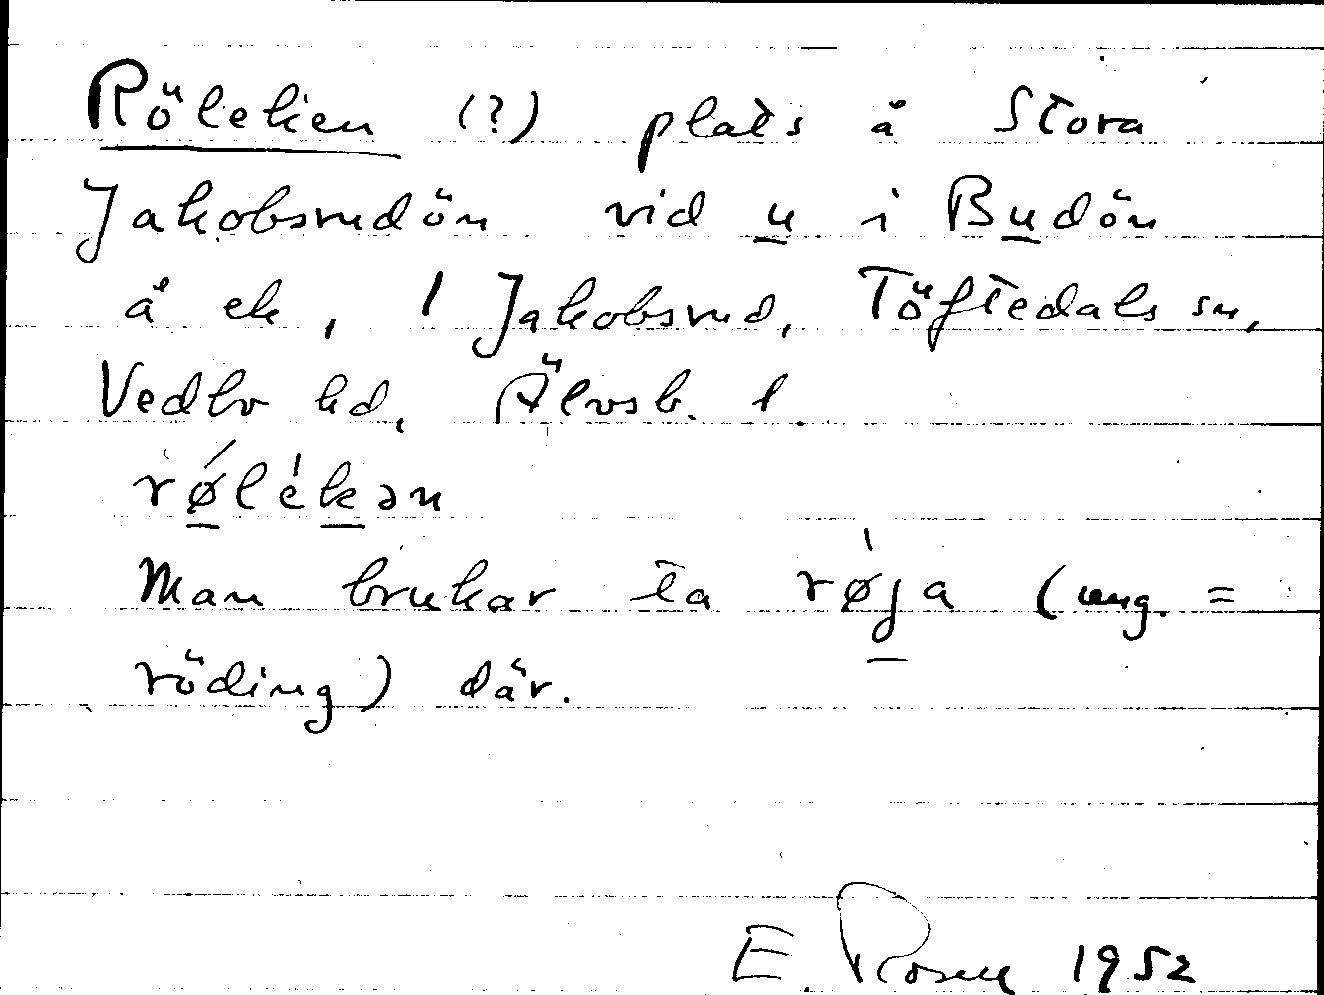 Röleken (?) plats å Stora
Jakobsrudön vid u i Budön
å ek, 1 Jakobsrud, Töftedals sn,
Vedbo hd, Älvsb. l
røĺékən
Man brukar ta røja (ung. =
röding) där.
E. Rosen 1952